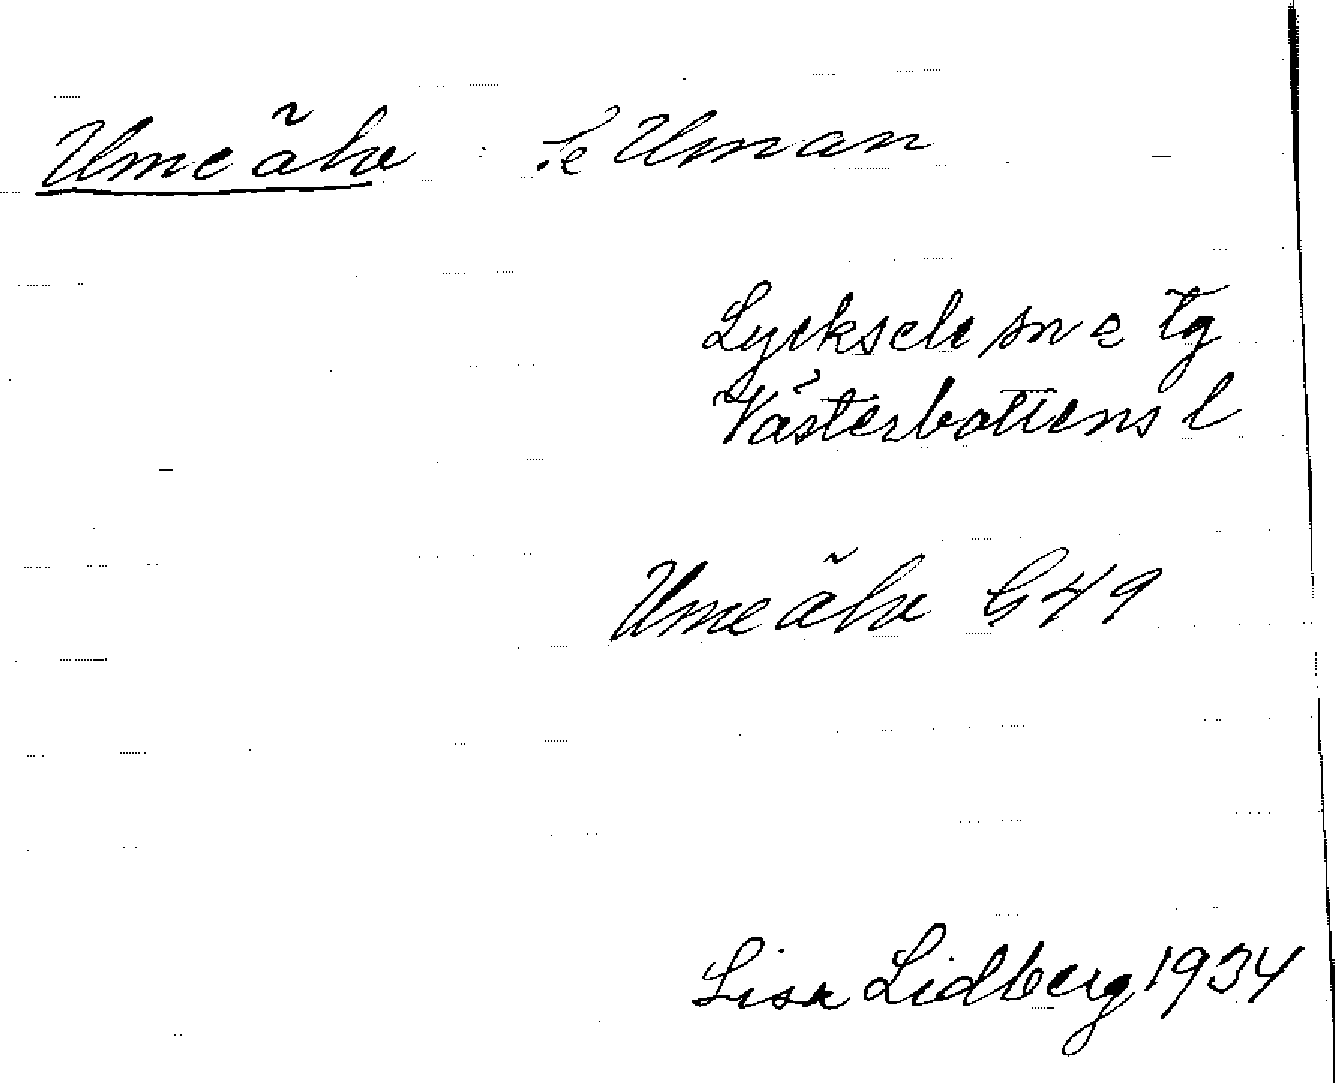 Umeälv : Se Uman
Lycksele sn o tg
Västerbottens l
Umeälv G49
Lisa Lidberg 1934